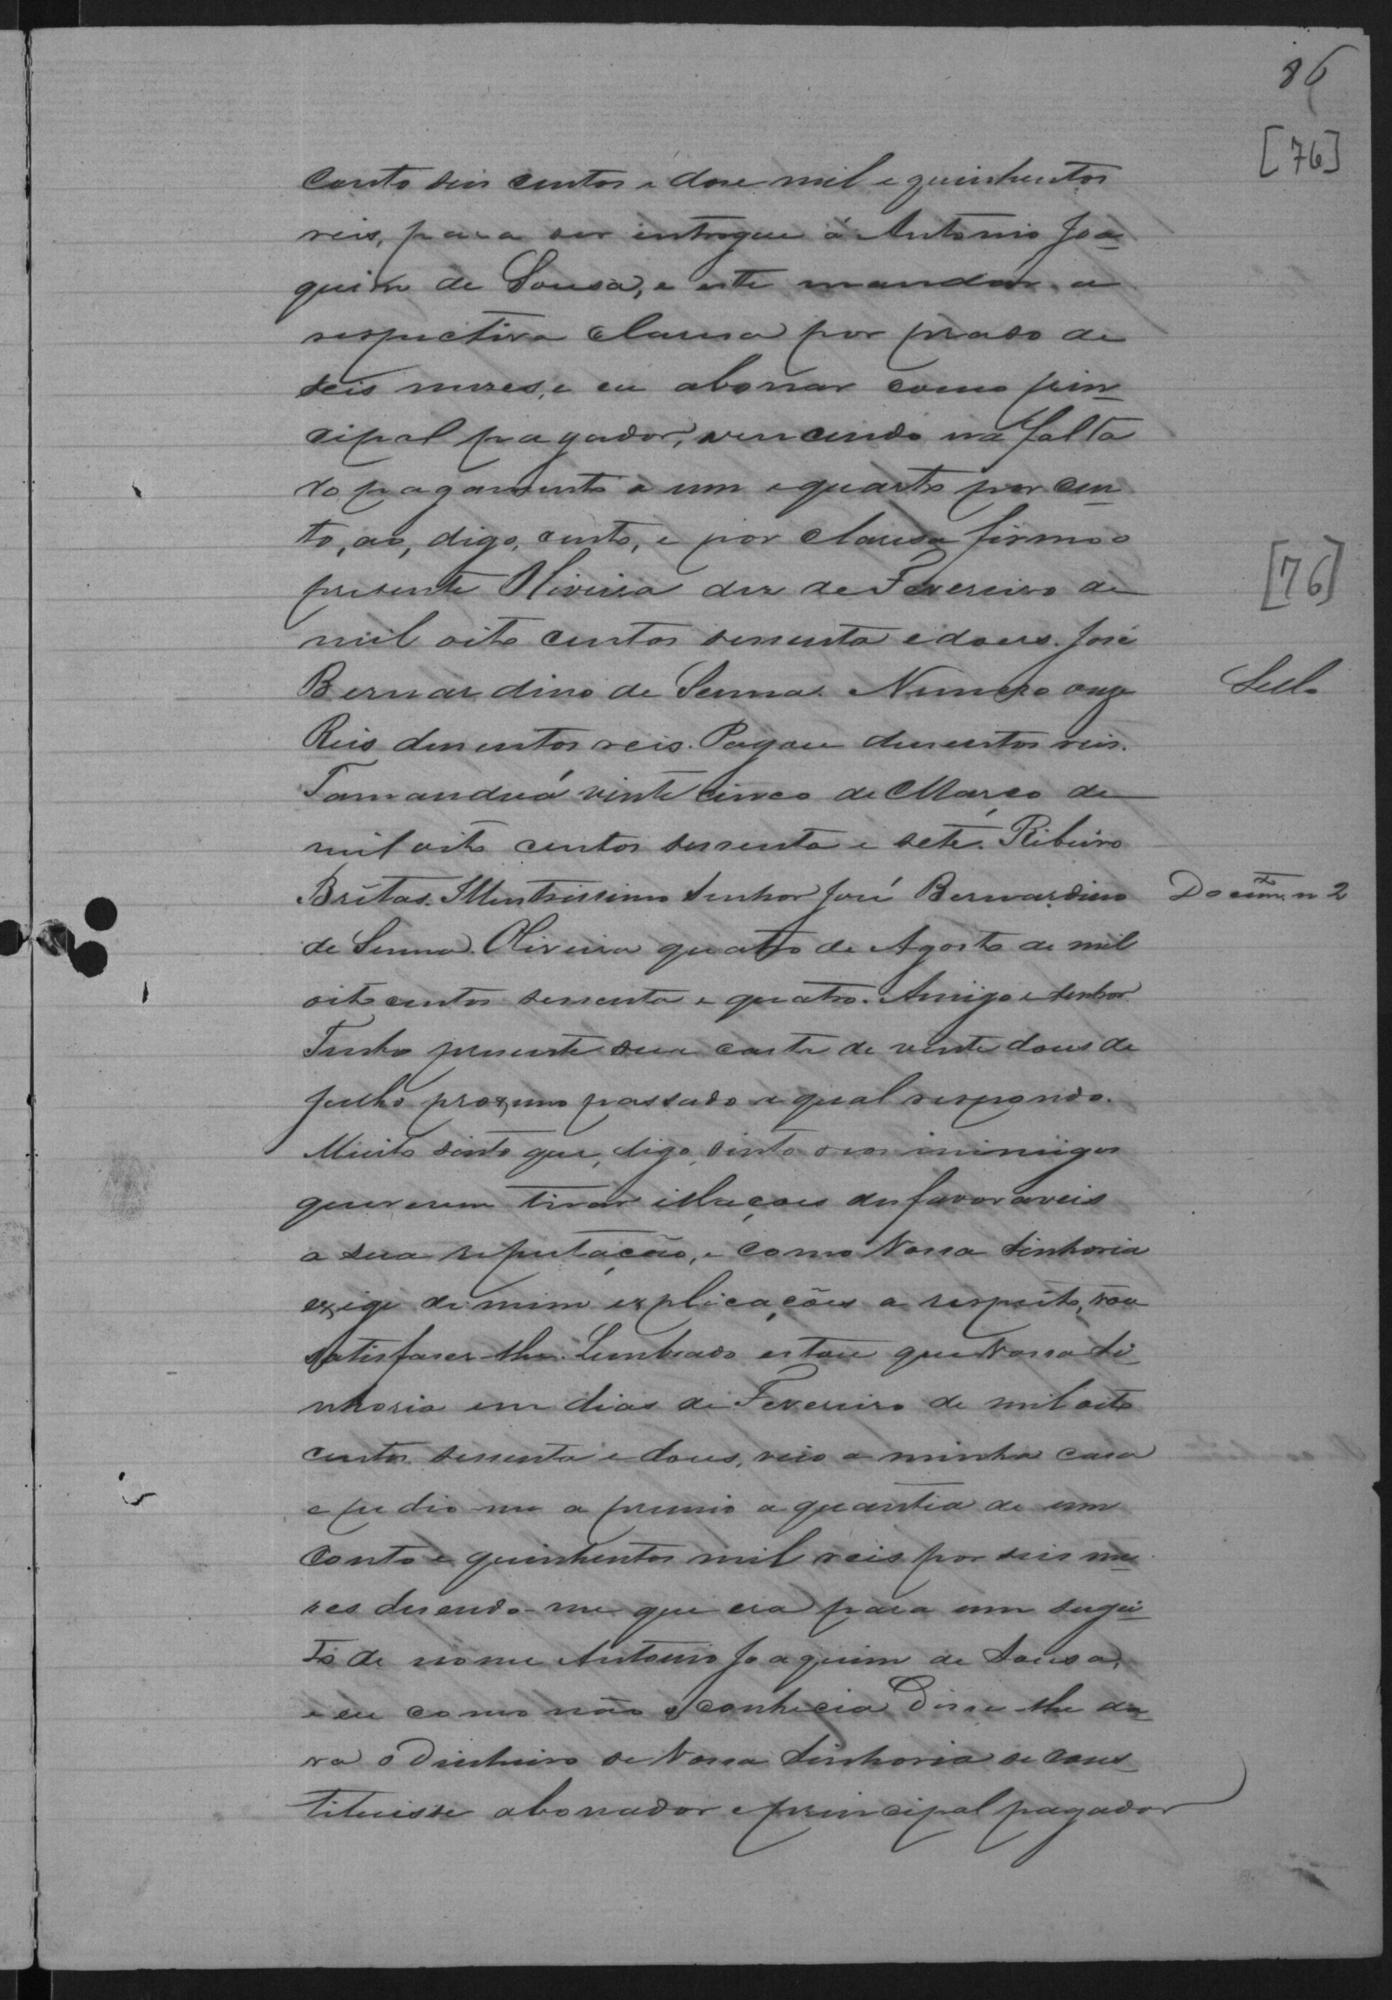 86
[76]
conto seis centos e dose mil e quinhentos
reis, para ser entregue á Antonio Joa-
quim de Sousa, e este mandar a
respectiva claresa por praso de
seis meses, e eu abonar como prin-
cipal pagador, vencendo na falta
do pagamento a um e quarto por cen-
to, ao, digo, cento, e por claresa firmo o
presente Oliveira dez de Fevereiro de
mil oito centos sessenta e dous. José
Bernardino de Senna. Numero onze
Sello
Reis dusentos reis. Pagou dusentos reis.
Tamanduá vinte cinco de Março de
mil oito centos sessenta e sete. Ribeiro
Britas. Illustrissimo Senhor José Bernardino
Docum.to n 2
de Senna. Oliveira quatro de Agosto de mil
oito centos sessenta e quatro. Amigo e Senhor
Tenho presente sua carta de vinte dous de
Julho proximo passado a qual respondo.
Muito sinto que, digo, sinto seos inimigos
quererem tirar illações desfavoraveis
a sua reputação, e como Vossa Senhoria
exige de mim explicações a respeito, vou
satisfaser-lhe. Lembrado estou que Vossa Se-
nhoria em dias de Fevereiro de mil oito
centos sessenta e dous, veio a minha casa
e pedio-me a premio a quantia de um
conto e quinhentos mil reis por seis me-
ses disendo-me que era para um sugei-
to de nome Antonio Joaquim de Sousa,
e eu como não o conhecia Disse-lhe da-
va o Dinheiro se Vossa Senhoria se cons-
tituisse abonador e principal pagador
[76]